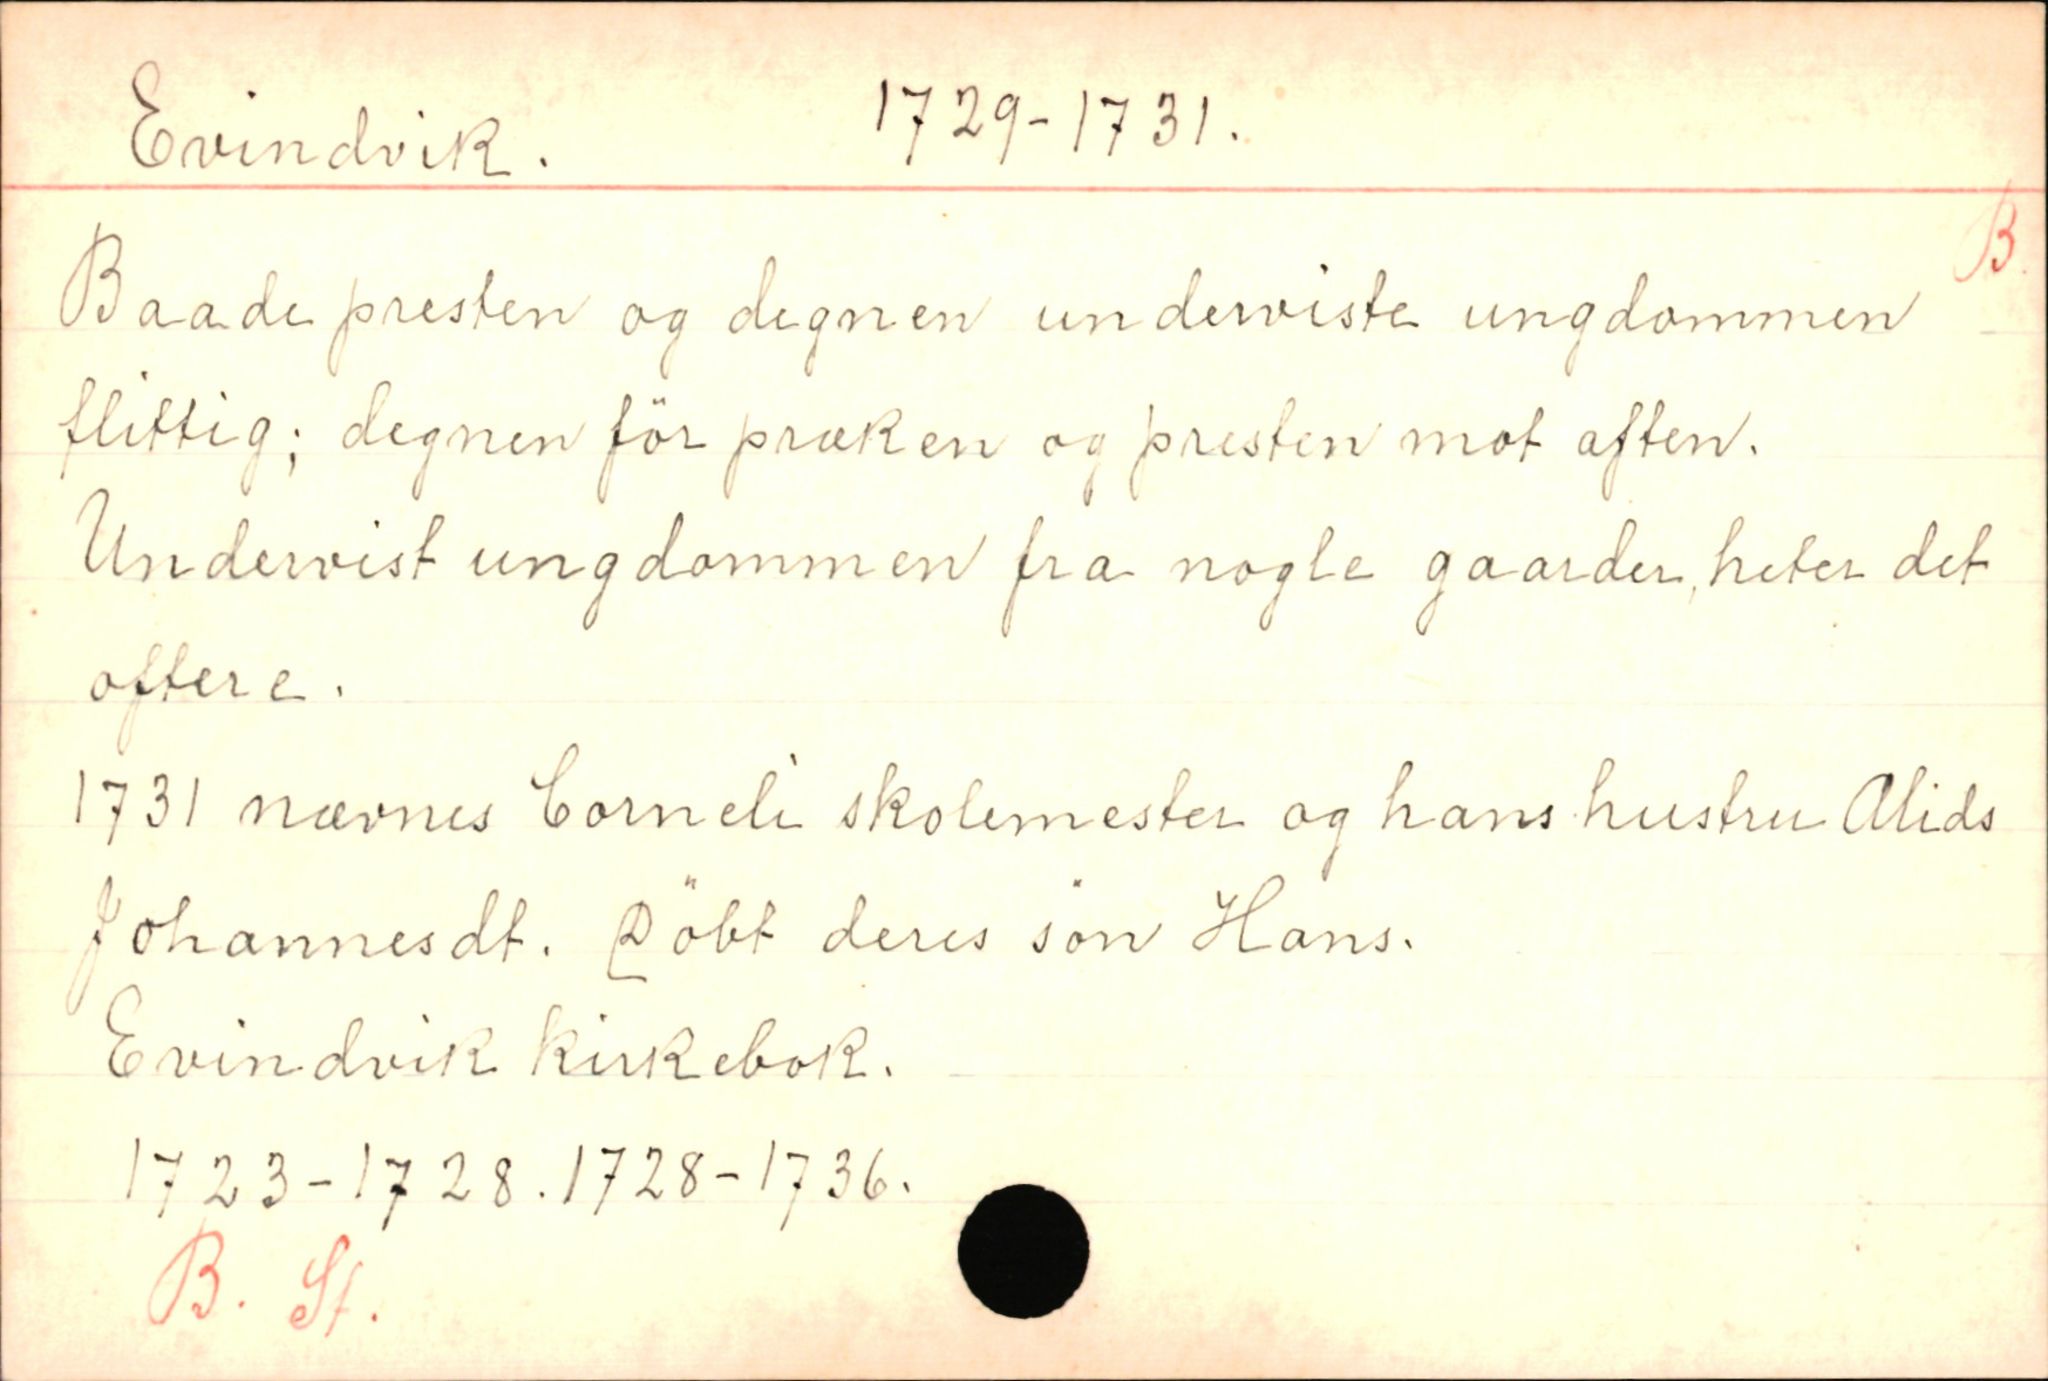 Evindvik. 1729-1731.
B.
Baade presten og degnen underviste ungdommen
flittig; degnen för præken og presten mot aften.
Undervist ungdommen fra nogle gaarder, heter det
oftere.
1731 nævnes Corneli skolemester og hans hustru Alids
Johannesdt. Döbt deres sön Hans.
Evindvik kirkebok.
1723-1728. 1728-1736.
B. St.